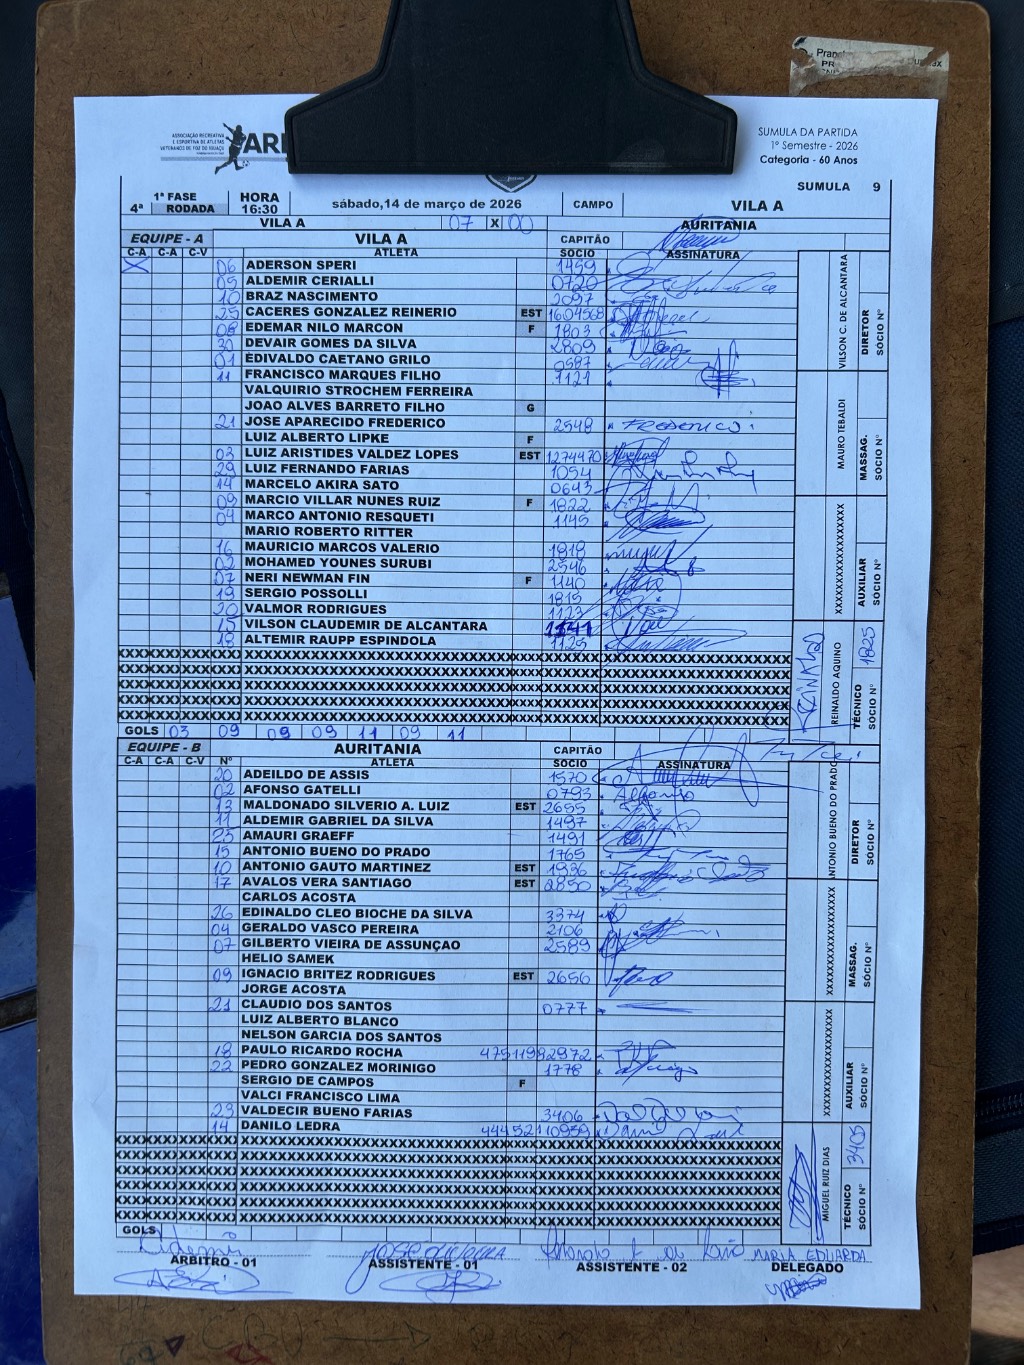 ASSOCIAÇÃO RECREATIVA
E ESPORTIVA DE ATLETAS
VETERANOS DE FOZ DO IGUAÇU
SUMULA DA PARTIDA
1º Semestre - 2026
Categoria - 60 Anos
SUMULA 9
4ª 1ª FASE RODADA HORA 16:30 sábado,14 de março de 2026 CAMPO VILA A
VILA A 07 X 00 AURITANIA
EQUIPE - A VILA A CAPITÃO
C-A C-A C-V ATLETA SOCIO ASSINATURA
X 06 ADERSON SPERI 1459
05 ALDEMIR CERIALLI 0720
10 BRAZ NASCIMENTO 2097
25 CACERES GONZALEZ REINERIO EST 1604568
08 EDEMAR NILO MARCON F 1803
30 DEVAIR GOMES DA SILVA 2809
01 EDIVALDO CAETANO GRILO 0587
11 FRANCISCO MARQUES FILHO 1121
VALQUIRIO STROCHEM FERREIRA
JOAO ALVES BARRETO FILHO G
21 JOSE APARECIDO FREDERICO 2548 FREDERICO
LUIZ ALBERTO LIPKE F
03 LUIZ ARISTIDES VALDEZ LOPES EST 1274470
29 LUIZ FERNANDO FARIAS 1054
14 MARCELO AKIRA SATO 0643
09 MARCIO VILLAR NUNES RUIZ F 1822
04 MARCO ANTONIO RESQUETI 1145
MARIO ROBERTO RITTER
16 MAURICIO MARCOS VALERIO 1818
02 MOHAMED YOUNES SURUBI 2546
07 NERI NEWMAN FIN F 1140
19 SERGIO POSSOLLI 1815
20 VALMOR RODRIGUES 1123
15 VILSON CLAUDEMIR DE ALCANTARA 1141
18 ALTEMIR RAUPP ESPINDOLA 1125
VILSON C. DE ALCANTARA DIRETOR SÓCIO Nº
MAURO TEBALDI MASSAG. SÓCIO Nº
XXXXXXXXXXXXXXXXXX AUXILIAR SÓCIO Nº
REINALDO AQUINO TÉCNICO SÓCIO Nº 1825
GOLS 03 09 09 09 11 09 11
EQUIPE - B AURITANIA CAPITÃO
C-A C-A C-V Nº ATLETA SOCIO ASSINATURA
20 ADEILDO DE ASSIS 1570
02 AFONSO GATELLI 0793 Alfonso
13 MALDONADO SILVERIO A. LUIZ EST 2655
11 ALDEMIR GABRIEL DA SILVA 1497
25 AMAURI GRAEFF 1491
15 ANTONIO BUENO DO PRADO 1765
10 ANTONIO GAUTO MARTINEZ EST 1936
17 AVALOS VERA SANTIAGO EST 2850
CARLOS ACOSTA
26 EDINALDO CLEO BIOCHE DA SILVA 3374
04 GERALDO VASCO PEREIRA 2106
07 GILBERTO VIEIRA DE ASSUNÇAO 2589
HELIO SAMEK
09 IGNACIO BRITEZ RODRIGUES EST 2656
JORGE ACOSTA
21 CLAUDIO DOS SANTOS 0777
LUIZ ALBERTO BLANCO
NELSON GARCIA DOS SANTOS
18 PAULO RICARDO ROCHA 47511982972
22 PEDRO GONZALEZ MORINIGO 1778
SERGIO DE CAMPOS F
VALCI FRANCISCO LIMA
23 VALDECIR BUENO FARIAS 3406
14 DANILO LEDRA 44452110959
ANTONIO BUENO DO PRADO DIRETOR SÓCIO Nº
XXXXXXXXXXXXXXXXXX MASSAG. SÓCIO Nº
XXXXXXXXXXXXXXXXXX AUXILIAR SÓCIO Nº
MIGUEL RUIZ DIAS TÉCNICO SÓCIO Nº 3405
GOLS
MARIA EDUARDA
ARBITRO - 01 ASSISTENTE - 01 ASSISTENTE - 02 DELEGADO